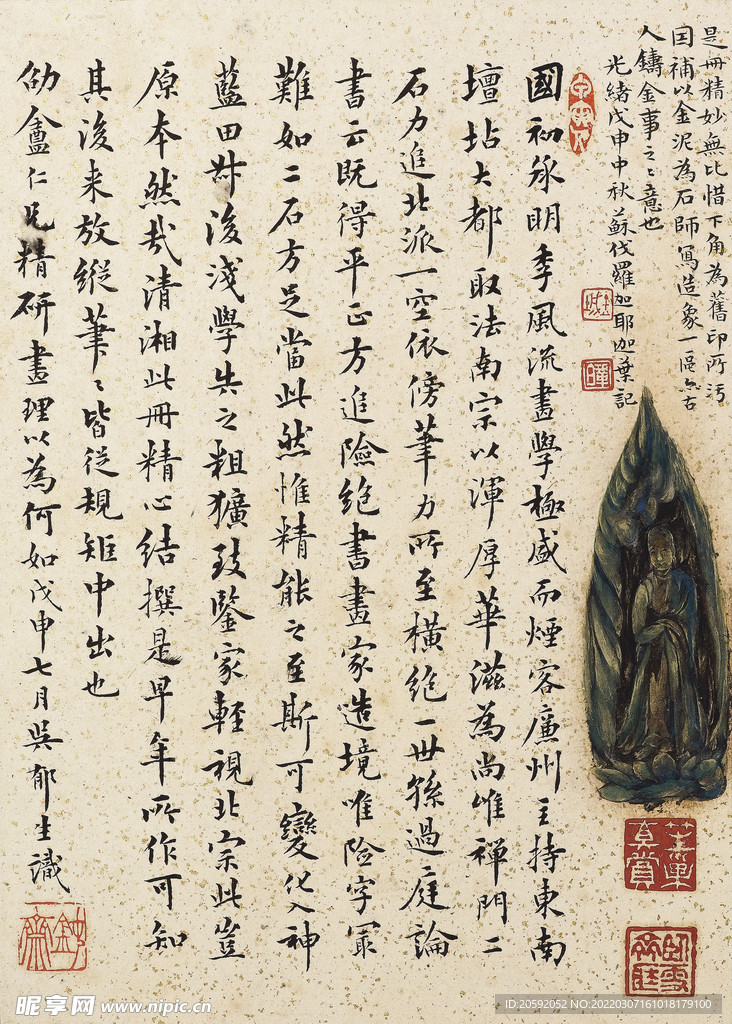 是冊精妙無比惜下角為舊印所污
因補以金泥為石師寫造象一區亦古
人鑄金事之之意也
光緒戊申中秋蘇伐羅伽耶迦葉記
國初承明季風流畫學極盛而煙客廉州主持東南
壇坫大都取法南宗以渾厚華滋為尚惟禪門二
石力追北派一空依傍筆力所至橫絕一世孫過庭論
書云既得平正方追險絕書畫家造境唯險字冣
難如二石方足當此然惟精能之至斯可變化入神
藍田尗後淺學失之粗獷致鑒家輕視北宗此豈
原本然哉清湘此冊精心結撰是早年所作可知
其後来放縱筆筆皆從規矩中出也
劬盦仁兄精研畫理以為何如戊申七月吳郁生識
昵享网 www.nipic.cn
ID:20592052 NO:20220307161018179100